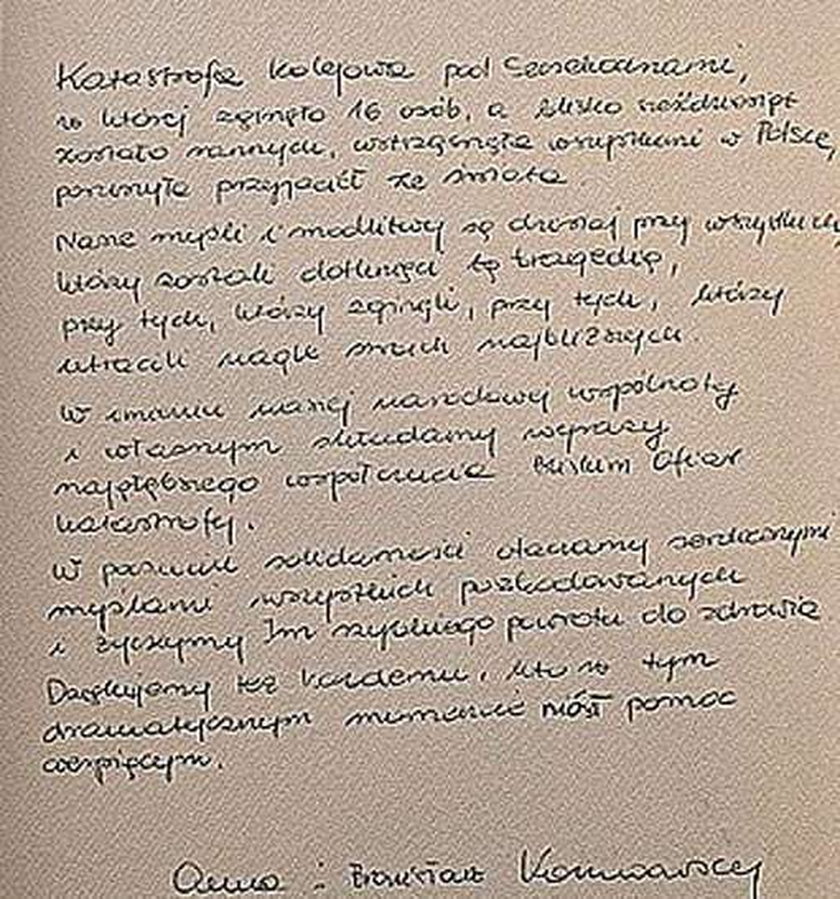 Katastrofa kolejowa pod Szczekocinami,
w której zginęło 16 osób, a blisko sześćdziesiąt
zostało rannych, wstrząsnęła wszystkimi w Polsce,
poruszyła przyjaciół ze świata.
Nasze myśli i modlitwy są dzisiaj przy wszystkich,
którzy zostali dotknięci tą tragedią,
przy tych, którzy zginęli, przy tych, którzy
utracili nagle swoich najbliższych.
W imieniu naszej narodowej wspólnoty
i własnym składamy wyrazy
najgłębszego współczucia Bliskim Ofiar
katastrofy.
W poczuciu solidarności otaczamy serdecznymi
myślami wszystkich poszkodowanych
i życzymy Im szybkiego powrotu do zdrowia
Dziękujemy też każdemu, kto w tym
dramatycznym momencie niósł pomoc
cierpiącym.
Anna i Bronisław Komorowscy